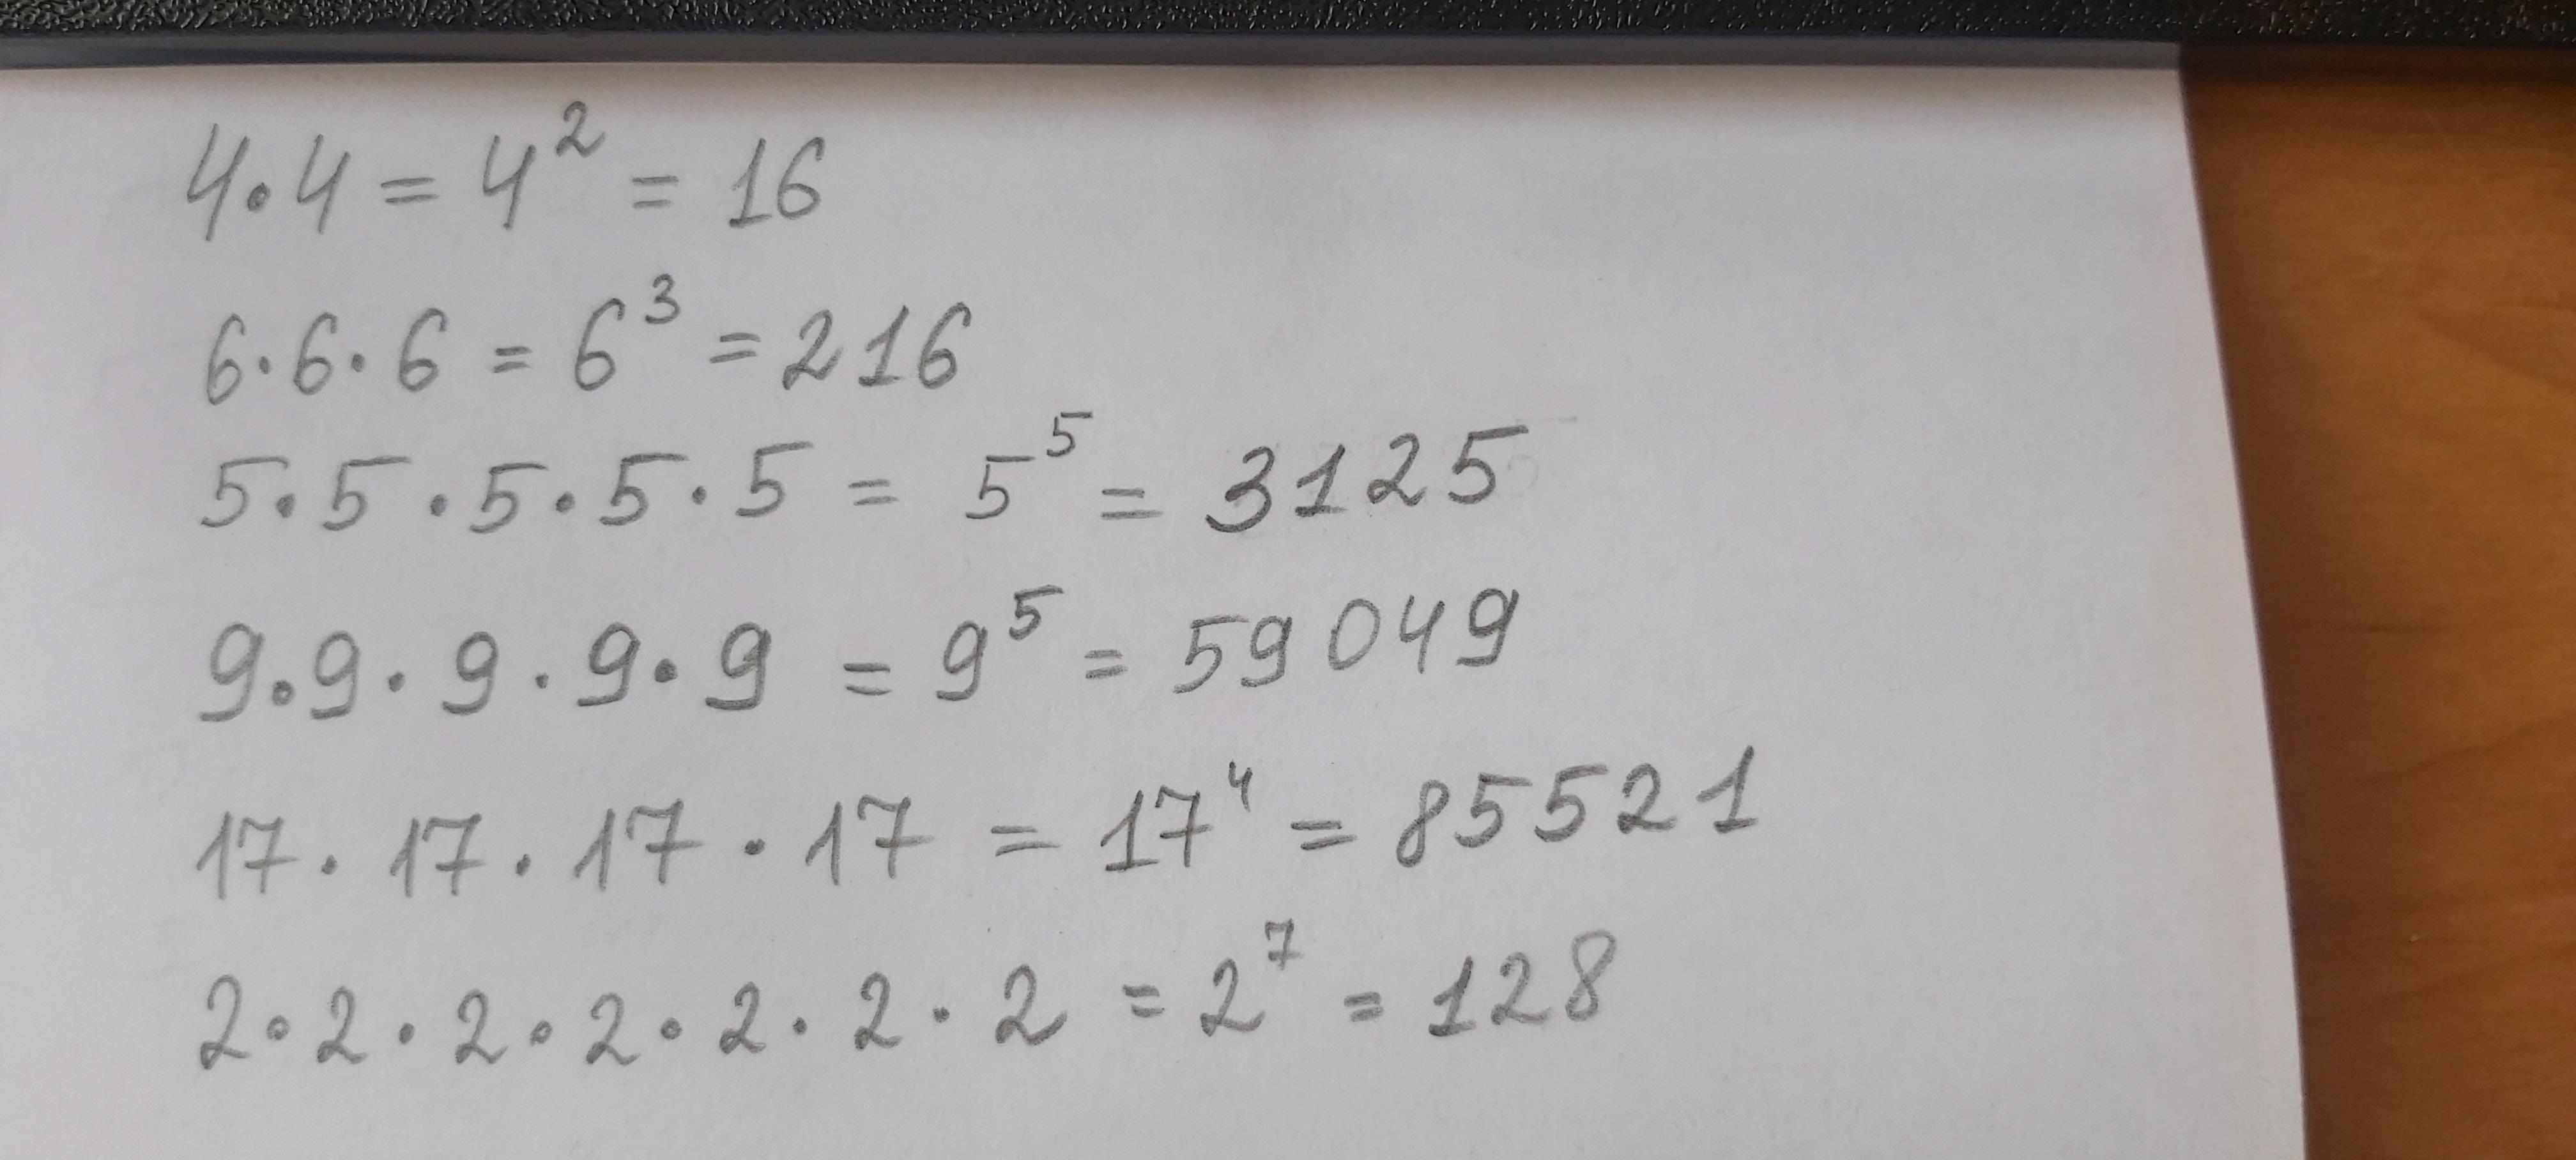 4·4 = 4² = 16
6·6·6 = 6³ = 216
5·5·5·5·5 = 5⁵ = 3125
9·9·9·9·9 = 9⁵ = 59049
17·17·17·17 = 17⁴ = 85521
2·2·2·2·2·2·2 = 2⁷ = 128